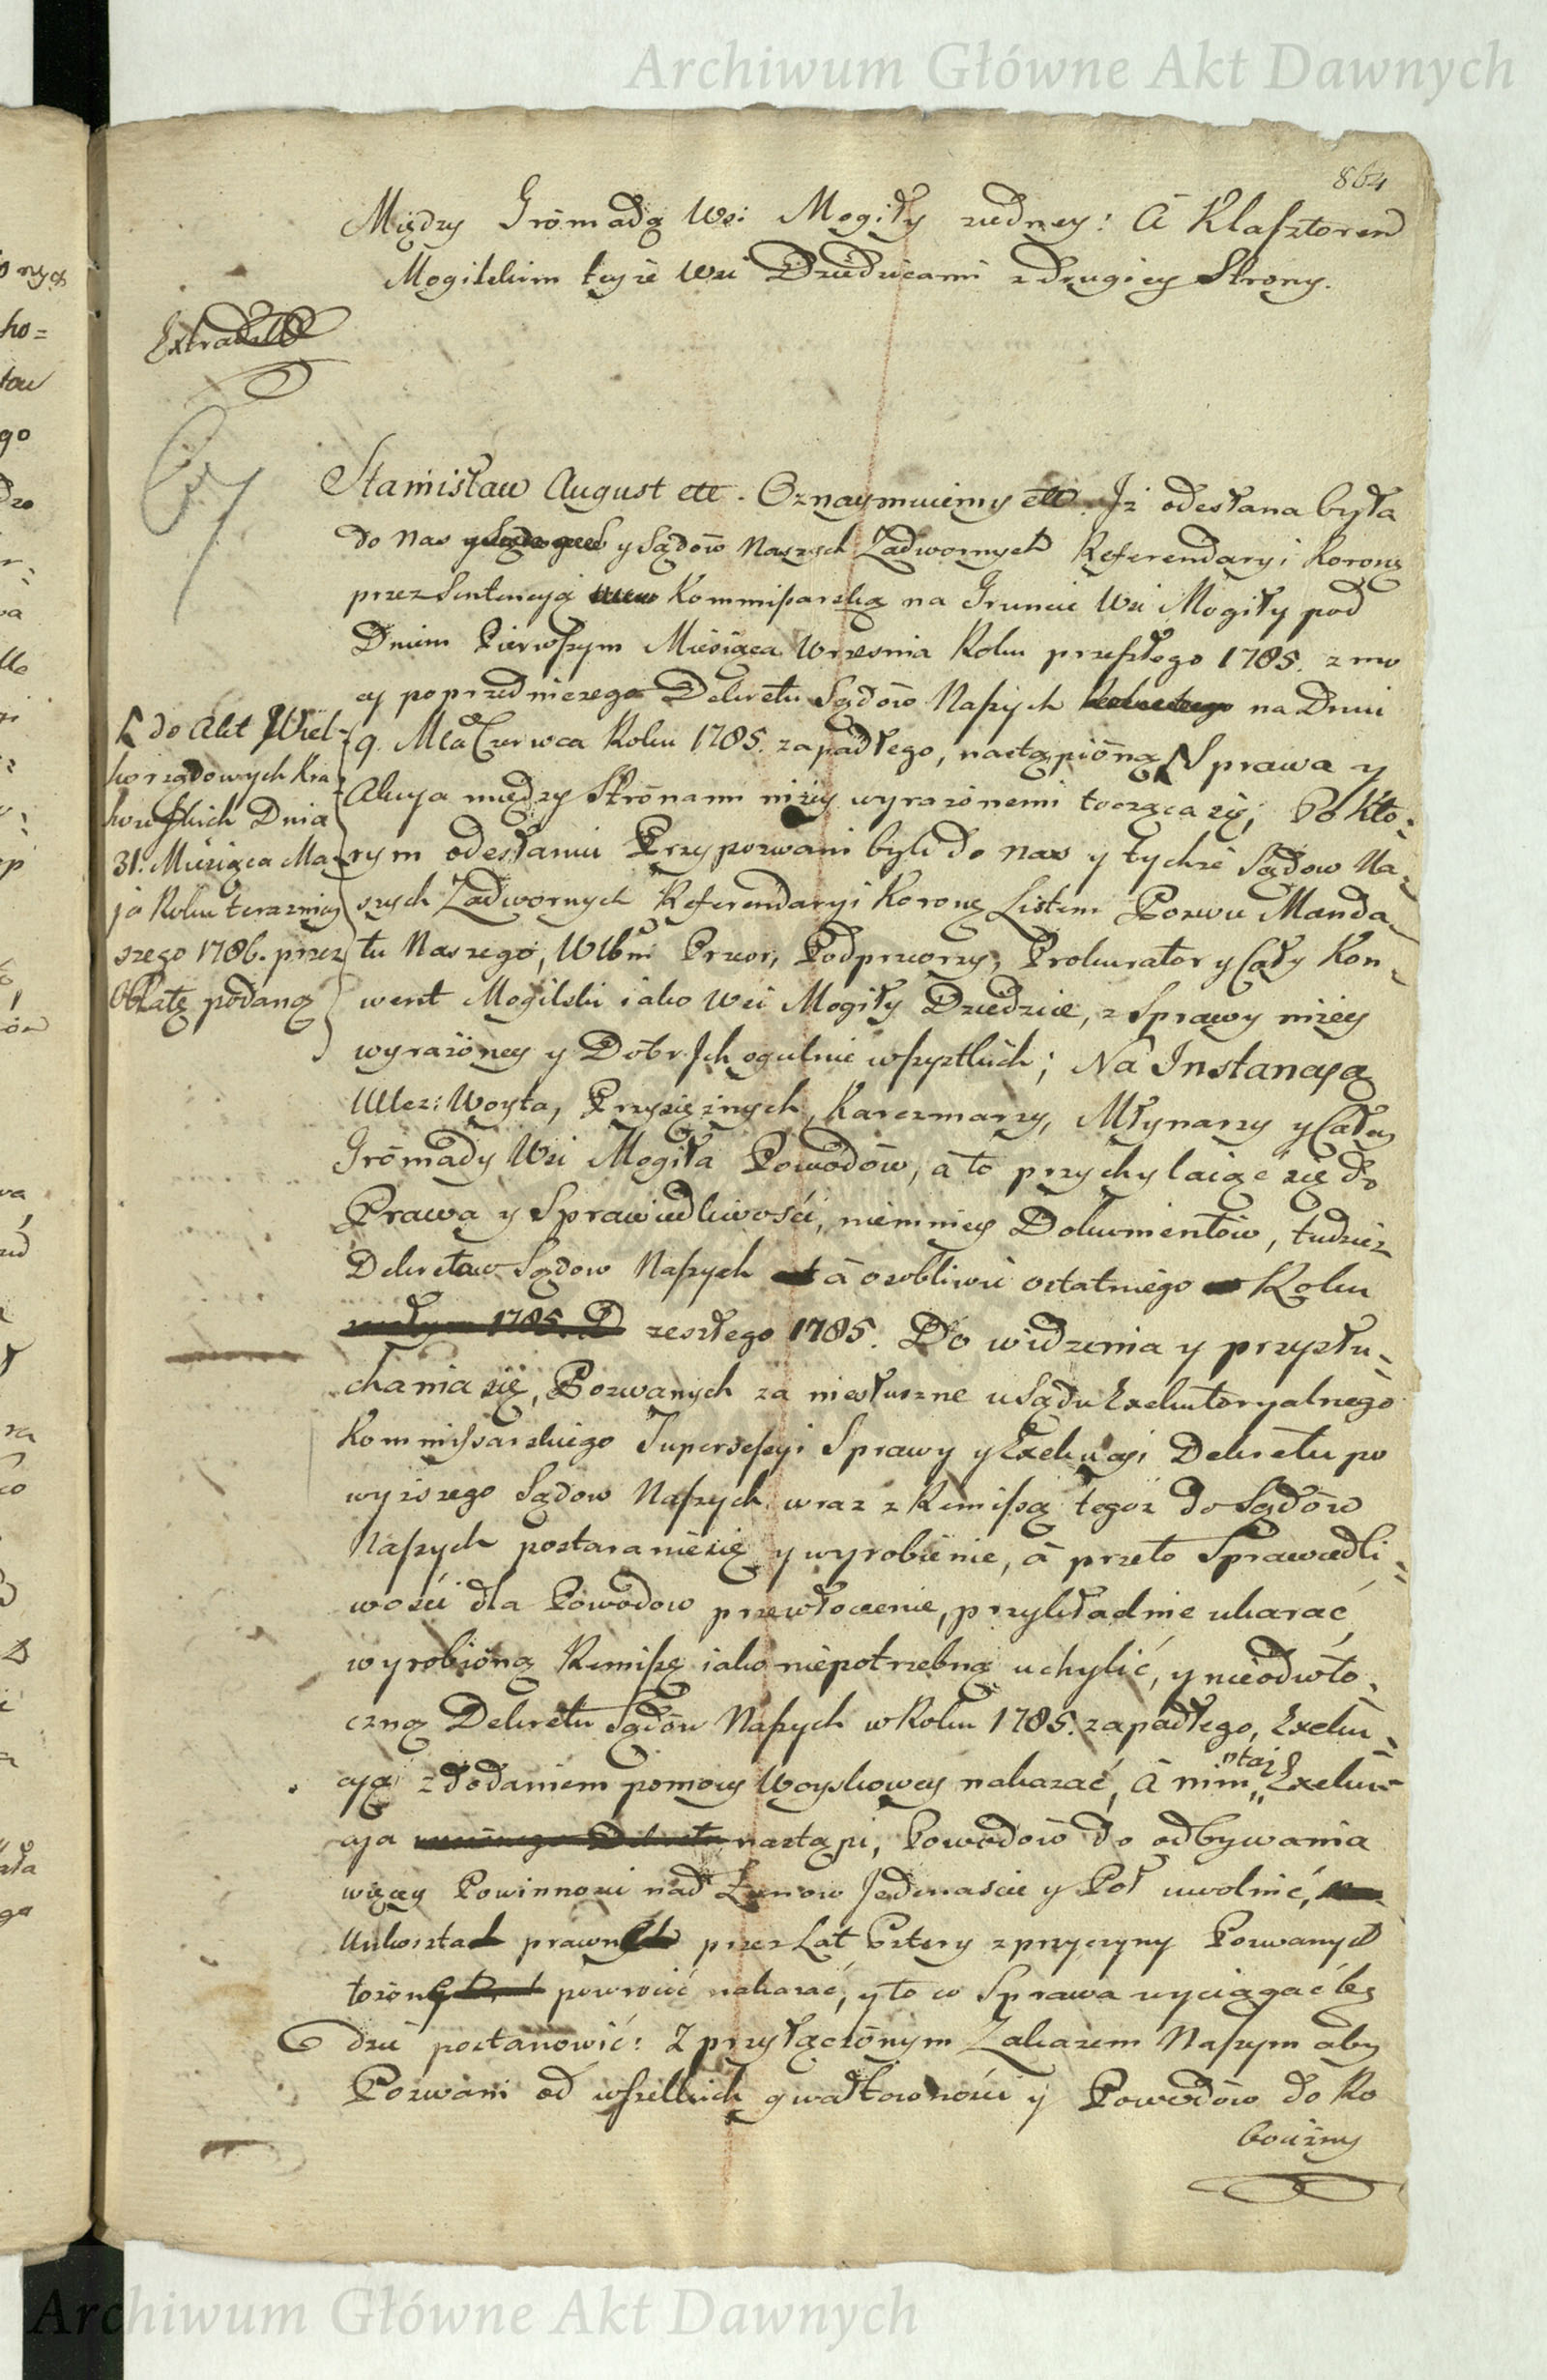 Archiwum Główne Akt Dawnych
864
Między Grómadą Wsi Mogiły ziedney: á Klasztorem
Mogilskim teyże Wsi Dziedzicami z drugiey Strony.
Stanisław August ett. Oznaymuiemy ett. Jż odesłana była
do nas y Sądów Naszych Zadwornych Referendaryi Korony
przez Sentencyą Kommissarską na Gruncie Wsi Mogiły pod
Dniem Pierwszym Miesiąca Wrzesnia Roku przeszłego 1785. z mo
cy poprzedniczego Dekretu Sądów Naszych na Dniu
9. Mca Czerwca Roku 1785. zapadłego, nastąpióną, Sprawa y
Akcya między Strónami niżey wyrażónemi tocząca się; Po któ=
rym odesłaniu Przypozwani byli do nas y tychże Sądow Na=
szych Zadwornych Referendaryi Korony Listem Pozwu Manda
tu Naszego, Wlbni Przeor, Podprzeorzy, Prokurator y Cały Kon=
went Mogilski iako Wsi Mogiły Dziedzice, z Sprawy niżey
wyrażóney y Dóbr Jch ogulnie wszystkich; Na Instancyą
Ucz: Woyta, Przysiężnych, Karczmarzy, Młynarzy y Całey
Grómady Wsi Mogiła Powodów, á to przychylaiąc się do
Prawa y Sprawiedliwości, niemniey Dokumentów, tudziez
Dekretow Sądow Naszych á osobliwie ostatniego Roku
zeszłego 1785. Do widzenia y przysłu=
chania się, Pozwanych za niesłuszne u Sądu Exekutoryalnego
Kommissarskiego Supersessyi Sprawy y Exekucyi Dekretu po
wyższego Sądow Naszych wraz z Remissą tegoż do Sądów
Naszych postaranie się y wyrobienie, á przeto Sprawiedli=
wości dla Powodow przewłoczenie, przykładnie ukarać,
wyrobióną Remissę iako niepotrzebną uchylić, y nieodwło=
czną Dekretu Sądów Naszych w Roku 1785. zapadłego, Exeku=
cyą z dodaniem pomocy Woyskowey nakazać, á nim "taż" Exeku=
cya nastąpi, Powodow do odbywania
więcey Powinnosci nad Łanow Jedenascie y Poł uwolnić,
prawn przez Lat Cztery z przyczyny Pozwanych
powrocić nakazać, y to co Sprawa wyciągać bę
dzie postanowić: Z przyłączónym Zakazem Naszym aby
Pozwani od wszelkich gwałtowności y Powodów do Ro
bocizny
L do Akt Wiel=
korządowych Kra
kowskich Dnia
31. Miesiąca Ma=
ja Roku terazniey
szego 1786. przez
Oblatę podaną
Archiwum Główne Akt Dawnych